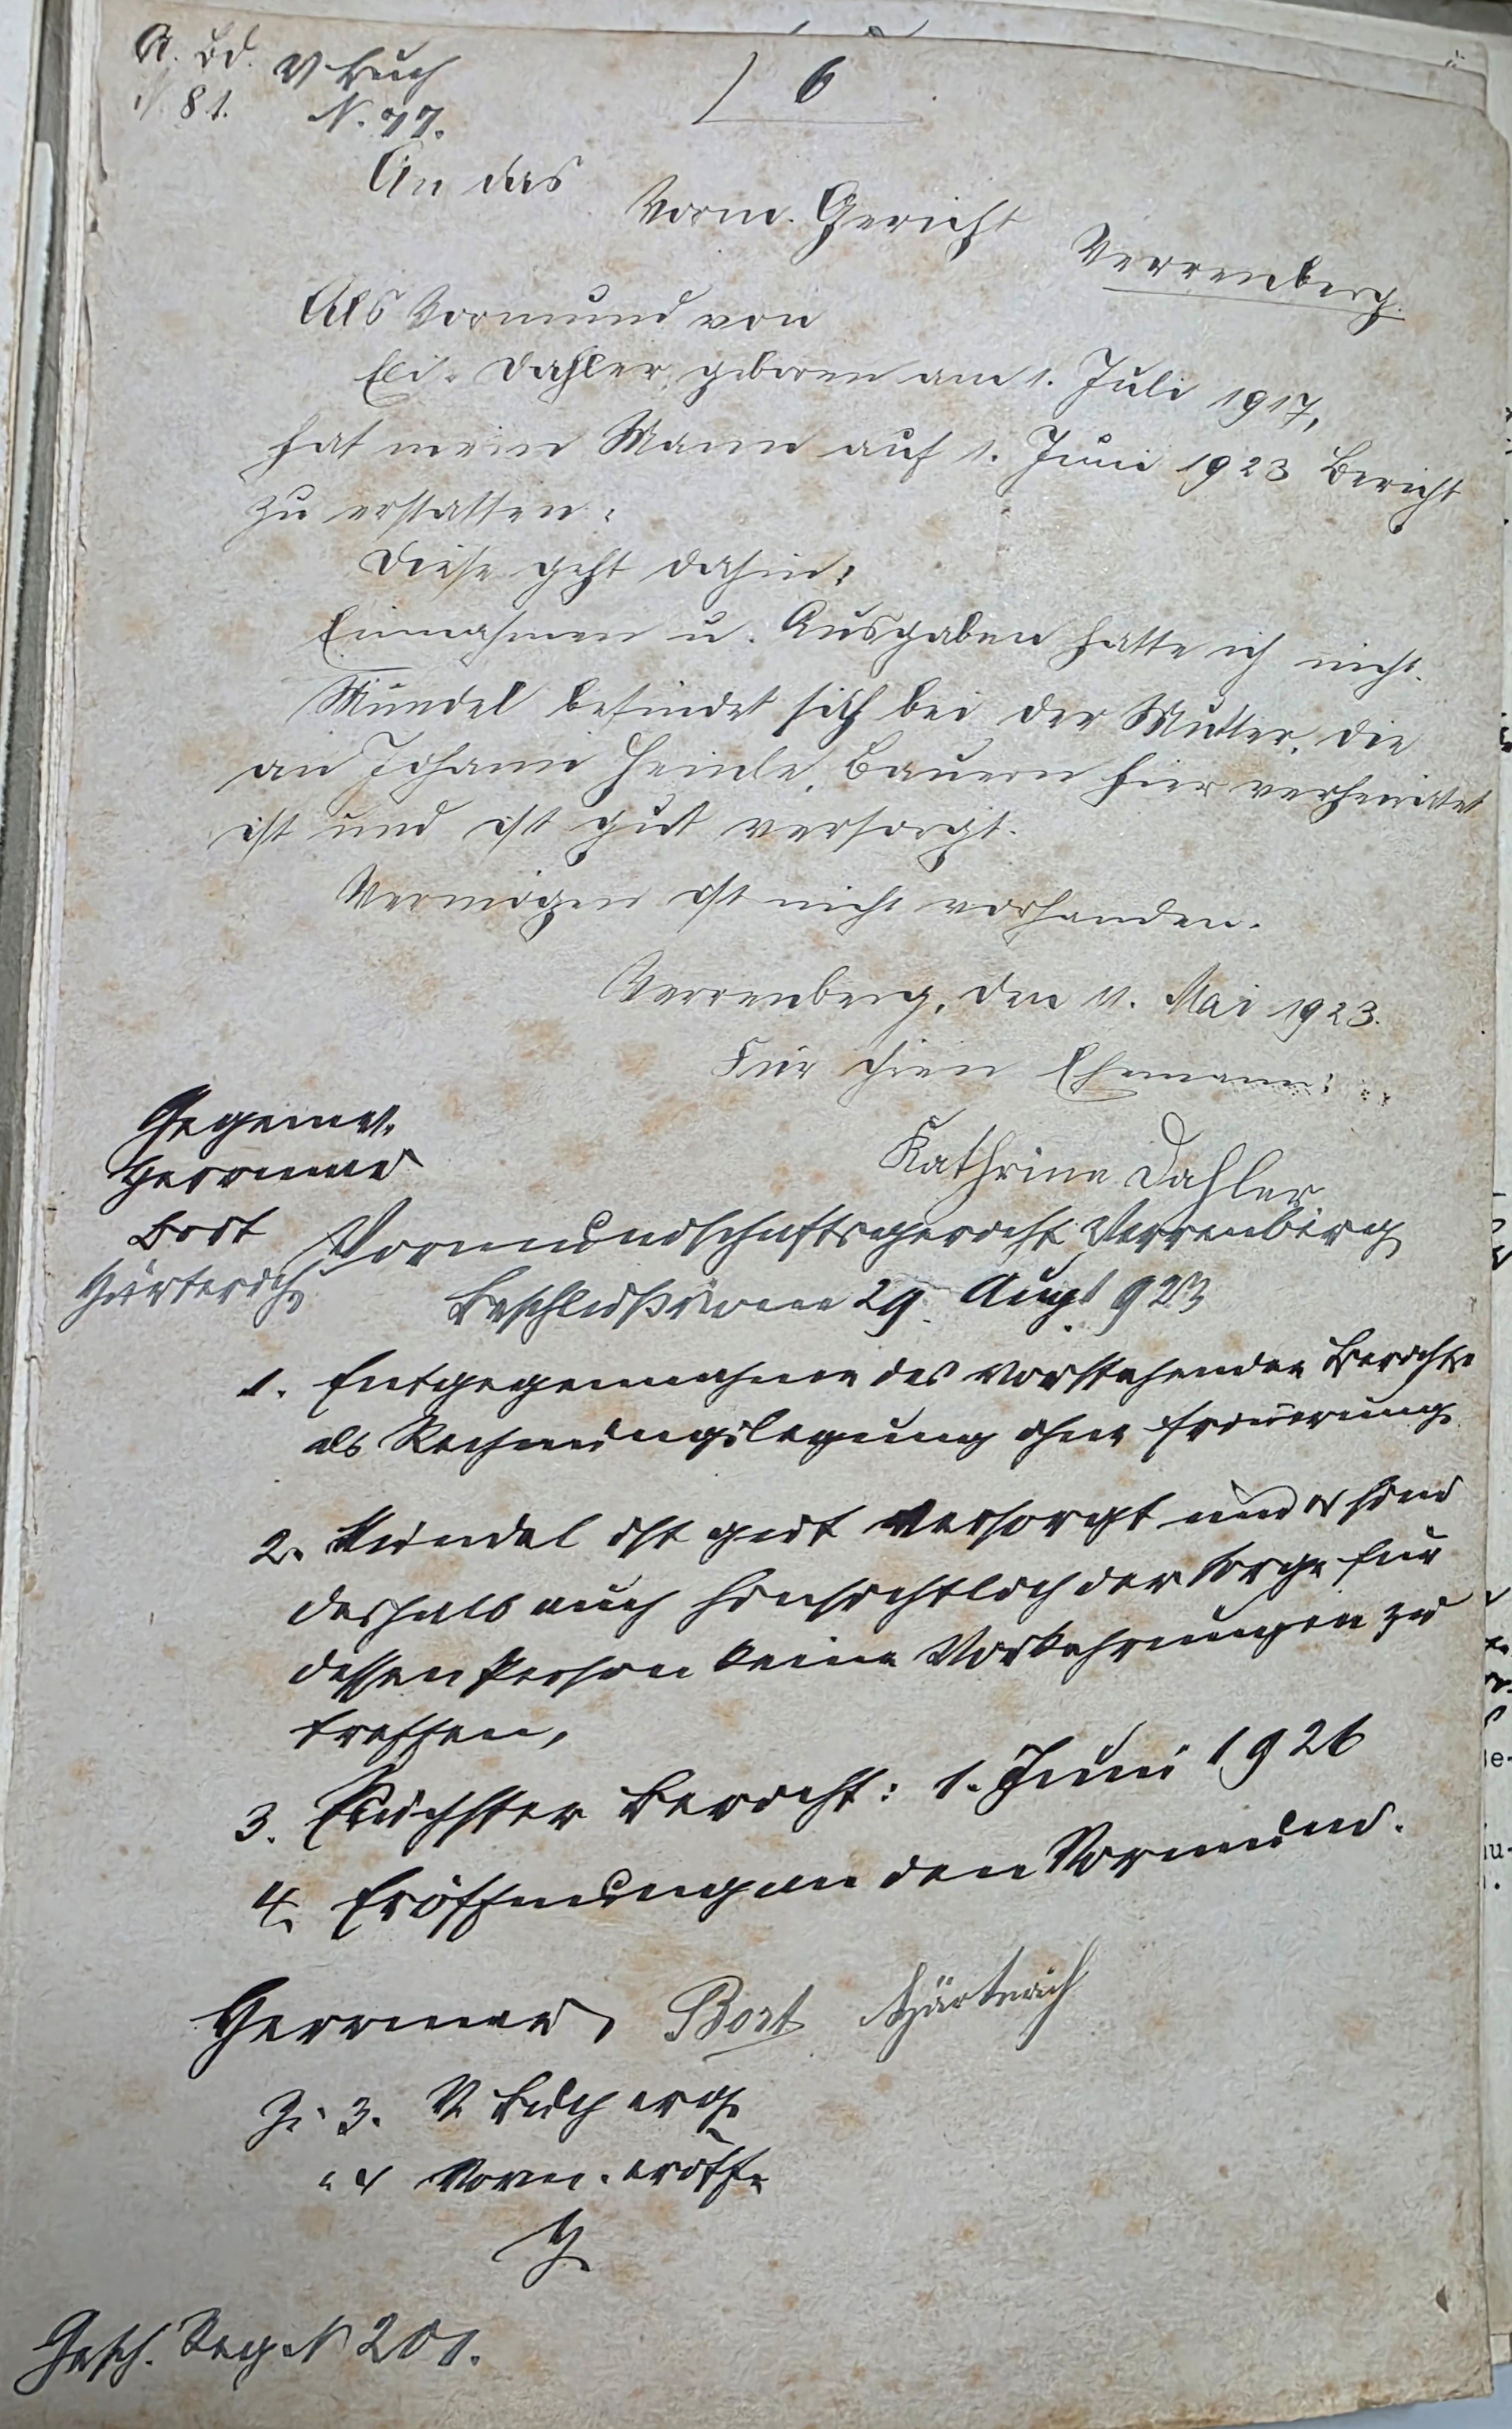 A. Bd. V. Buch
N. 81. N. 77.
6
An das
Vorm. Gericht
Verrenberg.
Als Vormund von
Dahler, geboren am 1. Juli 1917,
hat mein Mann auf 1. Juni 1923 Bericht
zu erstatten.
Diese geht dahin:
Einnahmen u. Ausgaben hatte ich nicht.
Mündel befindet sich bei der Mutter, die
an Johann Heinle, Bauern hier verheiratet
ist und ist gut versorgt.
Vermögen ist nicht vorhanden.
Verrenberg, den 11. Mai 1923.
Für ihren Ehemann:
Kathrine Dahler
Gegenw.
Herrmann
Bort
Härterich
Vormundschaftsgericht Verrenberg
Beschluß vom 29. Augt 923
1. Entgegennahme des vorstehenden Berichts
als Rechnungslegung ohne Erinnerung
2. Mündel ist gut versorgt und es sind
deshalb auch hinsichtlich der Sorge für
dessen Person keine Vorkehrungen zu
treffen,
3. Nächster Bericht: 1. Juni 1926
4. Eröffnung an den Vormund.
Herrmann, Bort Härterich
Z. 3. V. Buch erg.
" 4 Vorm. eröff.
H.
Gesch. Reg. N 201.